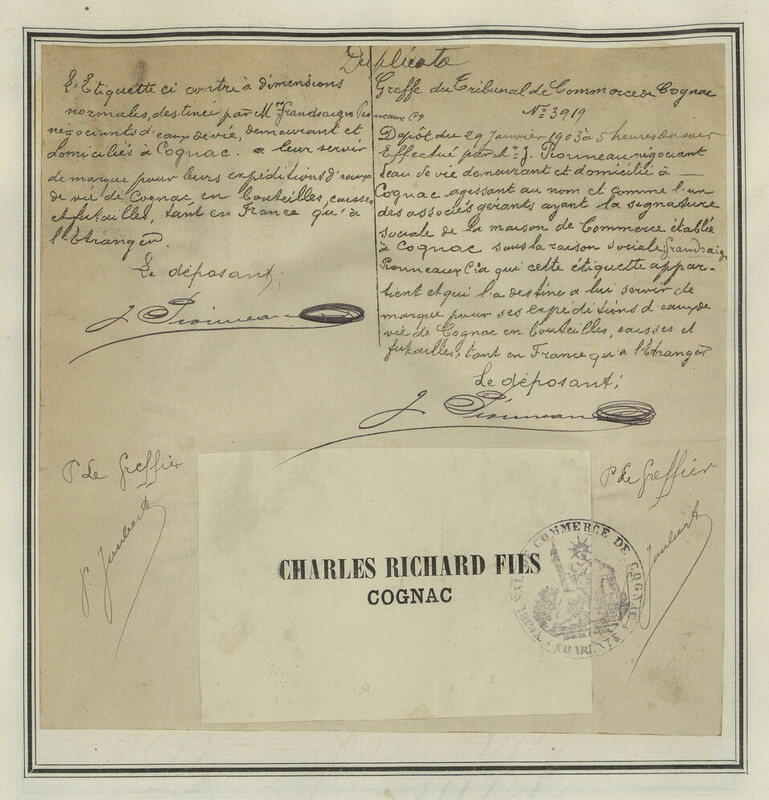 Duplicata
L'Etiquette ci contre à dimensions
normales, destinée par Mrs Grandsaigne Pionneau & Cie
négociants d'eaux de vie, demeurant et
domiciliés à Cognac. a leur servir
de marque pour leurs expéditions d'eaux
de vie de Cognac, en bouteilles, caisses
et futailles, tant en France qu'à
l'Etranger.
Le déposant,
J. Pionneau
Greffe du Tribunal de Commerce de Cognac
No 3919
Dépôt du 29 janvier 1903 à 5 heures du soir
Effectué par Mr J. Pionneau négociant
eau de vie demeurant et domicilié à —
Cognac agissant au nom et comme l'un
des associés gérants ayant la signature
sociale de la maison de Commerce établie
à Cognac sous la raison sociale Grandsaigne
Pionneau & Cie qui cette étiquette appar-
tient et qui l'a destine a lui servir de
marque pour ses expéditions d'eaux de
vie de Cognac en bouteilles, caisses et
futailles, tant en France qu'a l'Etranger
Le déposant,
J. Pionneau
P Le Greffier
P. Jaubert
P Le Greffier
Jaubert
CHARLES RICHARD FILS
COGNAC
TRIBUNAL DE COMMERCE DE COGNAC
(CHARENTE)